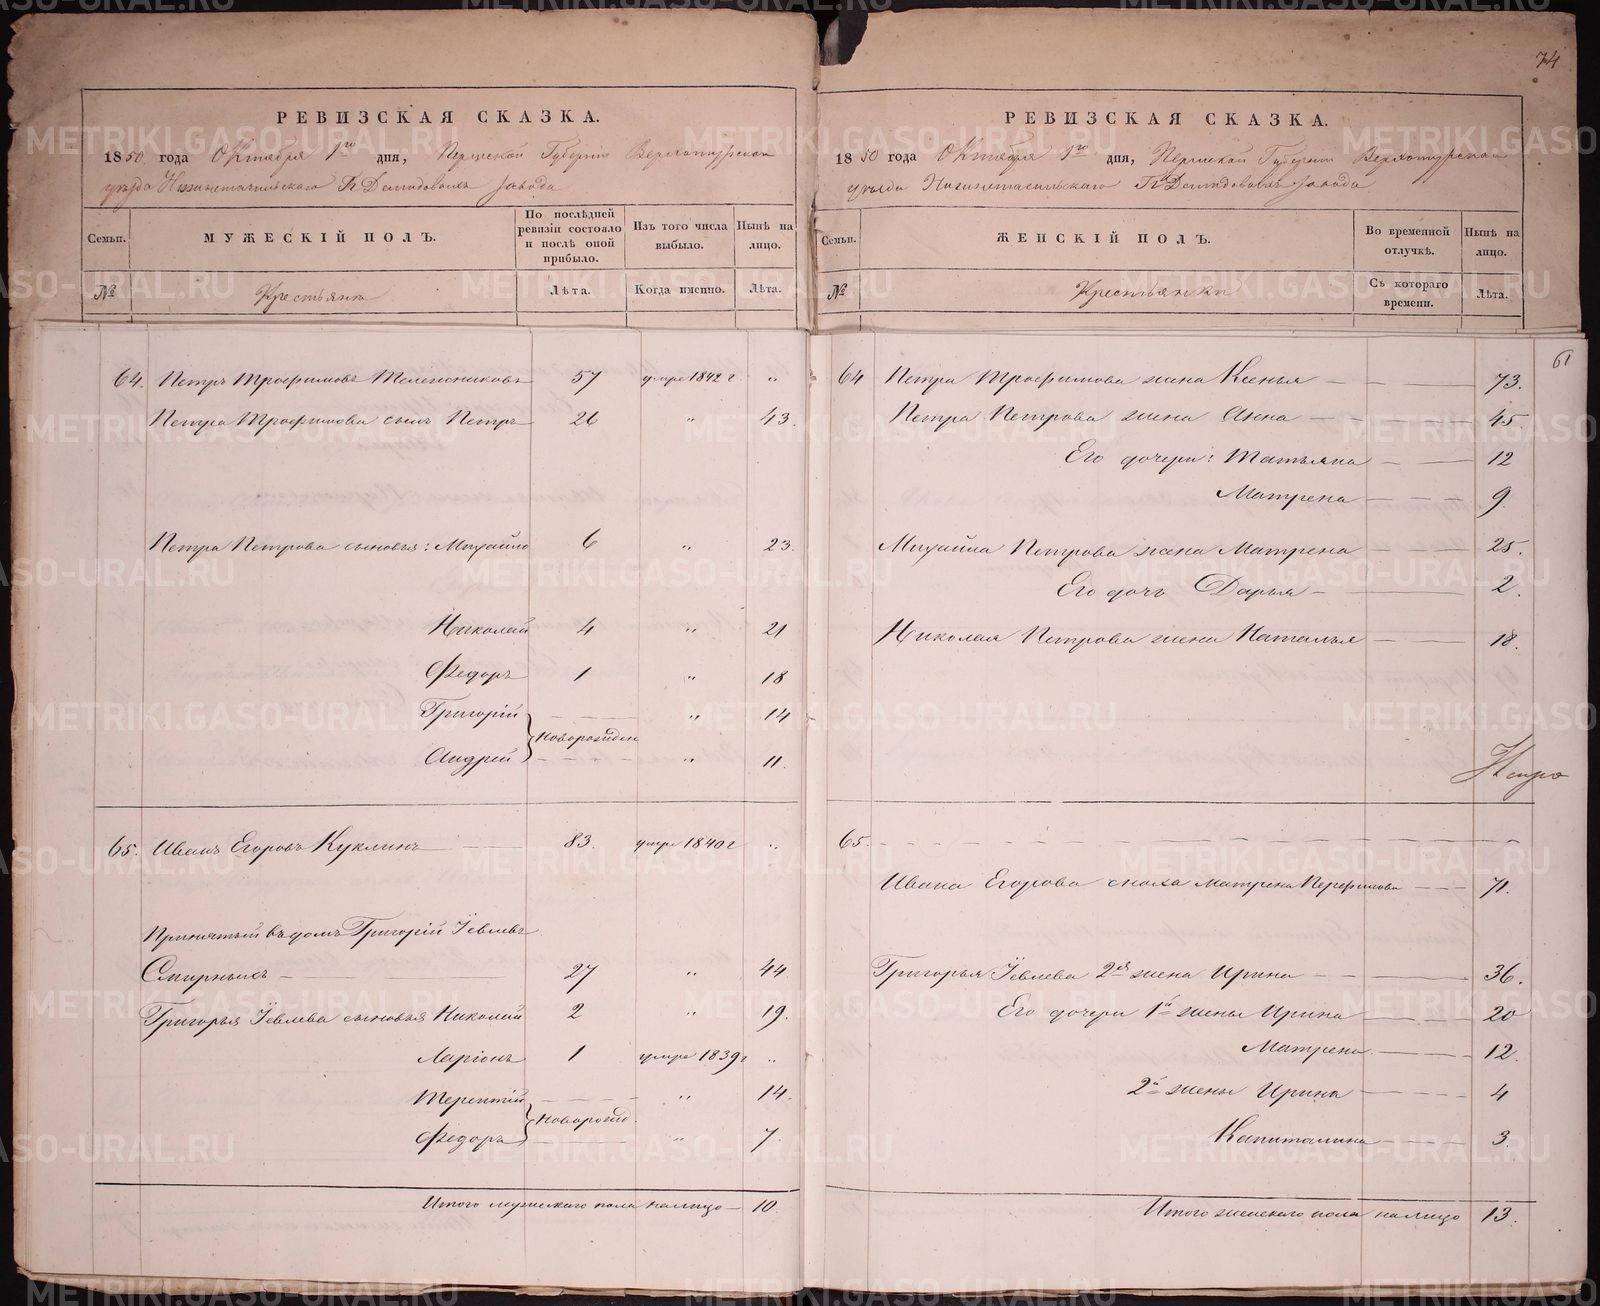 74
РЕВИЗСКАЯ СКАЗКА.
1850 года Октября 1го дня, Пермской Губернiи Верхотурскаго
уѣзда Нижнетагильскаго Гг Демидовыхъ завода
Семьи.
МУЖЕСКІЙ ПОЛЪ.
По послѣдней ревизіи состояло и послѣ оной прибыло.
Изъ того числа выбыло.
Нынѣ на лицо.
№
Крестьяне
Лѣта.
Когда именно.
Лѣта.
64. Петръ Трофимовъ Телешниковъ 57 умре 1842 г „
Петра Трофимова сынъ Петръ 26 „ 43.
Петра Петрова сыновья: Михайло 6 „ 23.
Николай 4 „ 21
Федоръ 1 „ 18
Григорій „ 14
Новорожден
Андрей „ 11.
65. Иванъ Егоровъ Куклинъ 83. умре 1840 г „
Принятый въ домъ Григорій Іевлевъ
Смирныхъ 27 „ 44
Григорья Іевлева сыновья Николай 2 „ 19.
Ларіонъ 1 умре 1839 г „
Терентій „ 14.
Новорожд.
Федоръ „ 7.
Итого мужескаго пола налицо 10.
РЕВИЗСКАЯ СКАЗКА.
1850 года Октября 1го дня, Пермской Губерніи Верхотурскаго
уѣзда Нижнетагильскаго Гг Демидовыхъ завода
Семьи.
ЖЕНСКІЙ ПОЛЪ.
Во временной отлучкѣ.
Нынѣ на лицо.
№
Крестьянки
Съ котораго времени.
Лѣта.
61
64 Петра Трофимова жена Ксенья 73.
Петра Петрова жена Анна 45.
Его дочери: Татьяна 12
Матрена 9.
Михайла Петрова жена Матрена 25.
Его дочь Дарья 2.
Николая Петрова жена Наталья 18.
65.
Ивана Егорова сноха Матрена Перфилова 71.
Григорья Іевлева 2я жена Ирина 36.
Его дочери 1й жены Ирина 20
Матрена 12.
2й жены Ирина 4
Капиталина 3.
Итого женскаго пола налицо 13.
METRIKI.GASO-URAL.RU